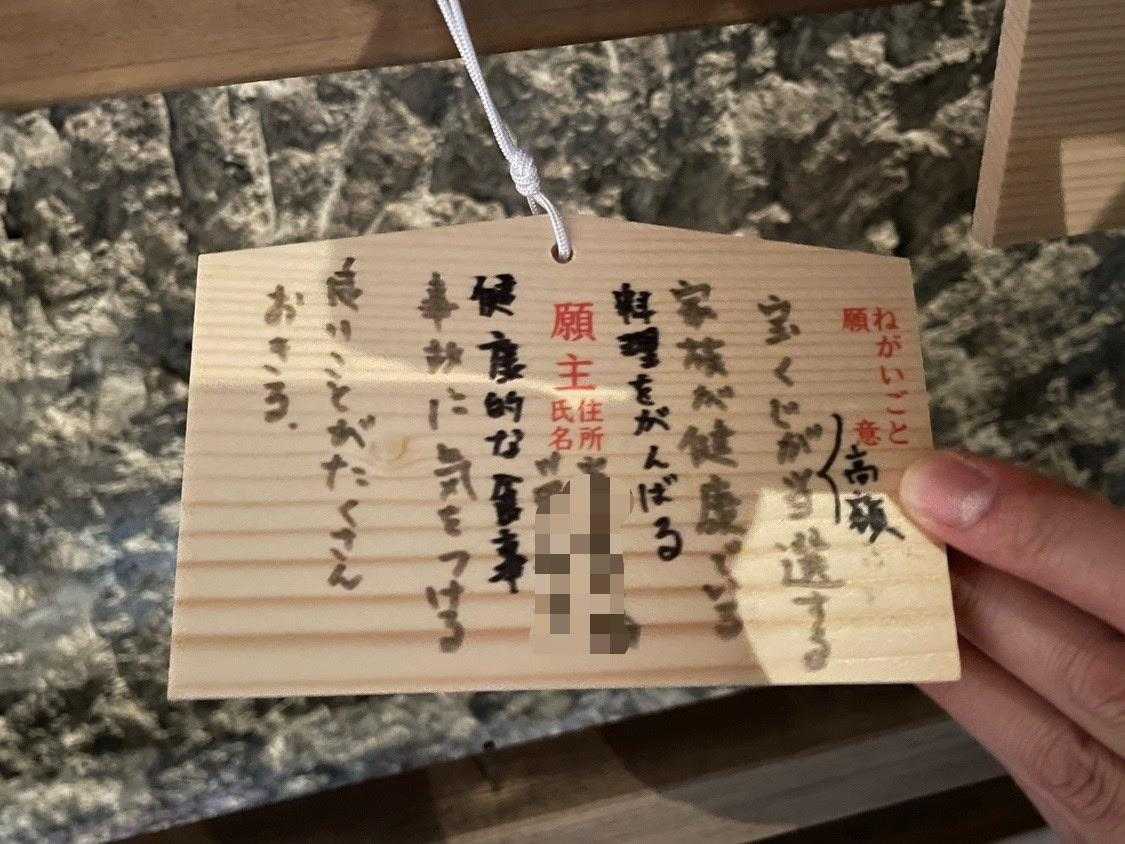 ねがいごと
願意
(高額)
宝くじが当選する
家族が健康でいる
料理をがんばる
願主
住所
氏名
健康的な食事
事故に気をつける
良いことがたくさん
おきる.